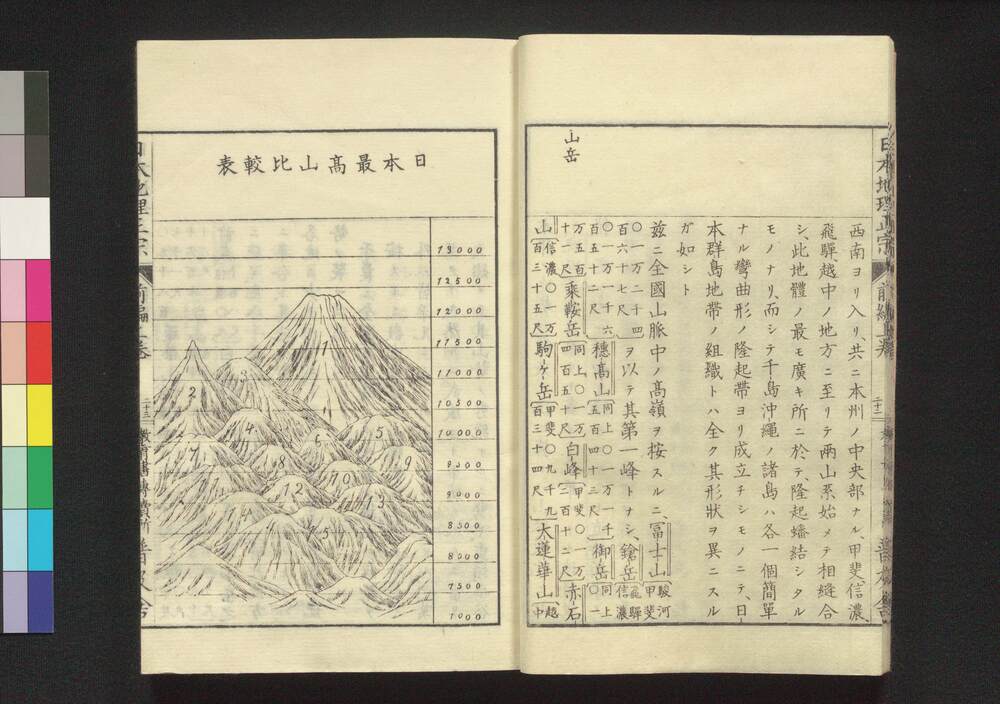 日本地理正宗
前編上巻
二十二
山岳
西南ヨリ入リ、共ニ本州ノ中央部ナル、甲斐信濃、
飛驒、越中ノ地方ニ至リテ両山系始メテ相縫合
シ、此地體ノ最モ廣キ所ニ於テ、隆起蟠結シタル
モノナリ、而シテ千島沖縄ノ諸島ハ各一個簡單
ナル彎曲形ノ隆起帶ヨリ成立チシモノニテ、日
本群島地帶ノ組織トハ全ク其形狀ヲ異ニスル
ガ如シト
茲ニ全國山脈中ノ高嶺ヲ按スルニ、冨士山 駿河甲斐
〇一万二千四百六十七尺 ヲ以テ其第一峰トナシ、鎗岳 飛驒信濃
〇一万六百五十二尺 穗髙山 同上〇一万千五百四十三尺 御岳 同上〇一
万五百十一尺 乘鞍岳 同上〇一万四百五十尺 白峰 甲斐〇一万二百十二尺 赤石
山 信濃〇一万百三十五尺 駒ケ岳 甲斐〇九千九百三十四尺 大蓮華山 越中
日本最髙山比較表
13000
12500
12000
11500
11000
10500
10000
9500
9000
8500
8000
7500
7000
1
3
2
4
6
5
7
8
9
10
12
13
15
日本地理正宗
前編上巻
二十三